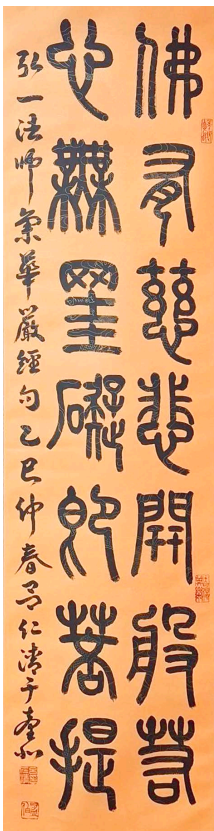 佛有慈悲開般若
心無罣礙即菩提
弘一法師集華嚴經句乙巳仲春呂仁清于臺北